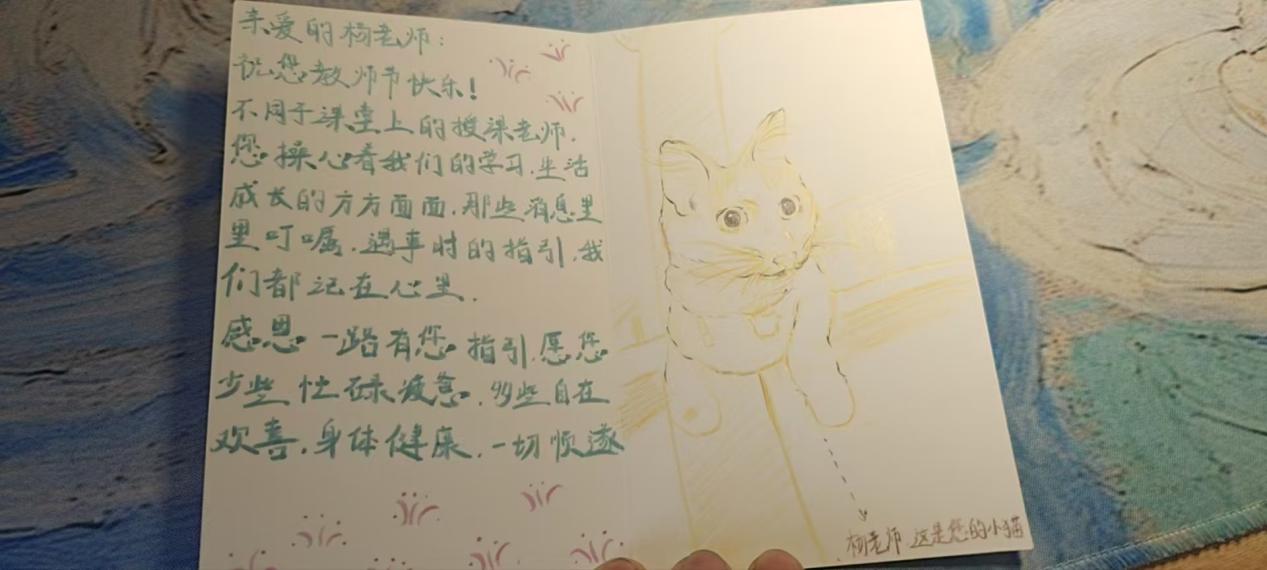 亲爱的杨老师：
祝您教师节快乐！
不同于课堂上的授课老师，
您操心着我们的学习，生活
成长的方方面面，那些消息里
里叮嘱，遇事时的指引，我
们都记在心里．
感恩一路有您指引，愿您
少些忙碌疲惫，多些自在
欢喜，身体健康，一切顺遂
杨老师 这是您的小猫